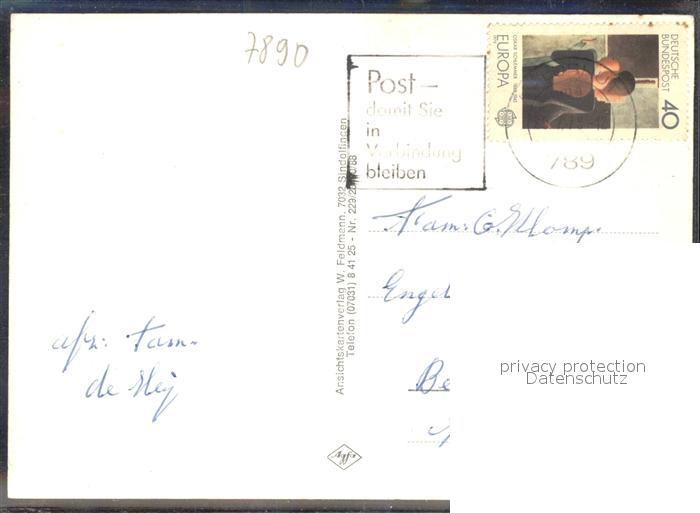 7890
Post –
damit Sie
in
Verbindung
bleiben
DEUTSCHE
BUNDESPOST
40
OSKAR SCHLEMMER 1888-1943
EUROPA
789
Ansichtskartenverlag W. Feldmann, 7032 Sindelfingen
Telefon (07031) 8 41 25 - Nr. 229/
Fam: G.
Engel
Be
afz: fam.
de Heij
Agfa
privacy protection
Datenschutz